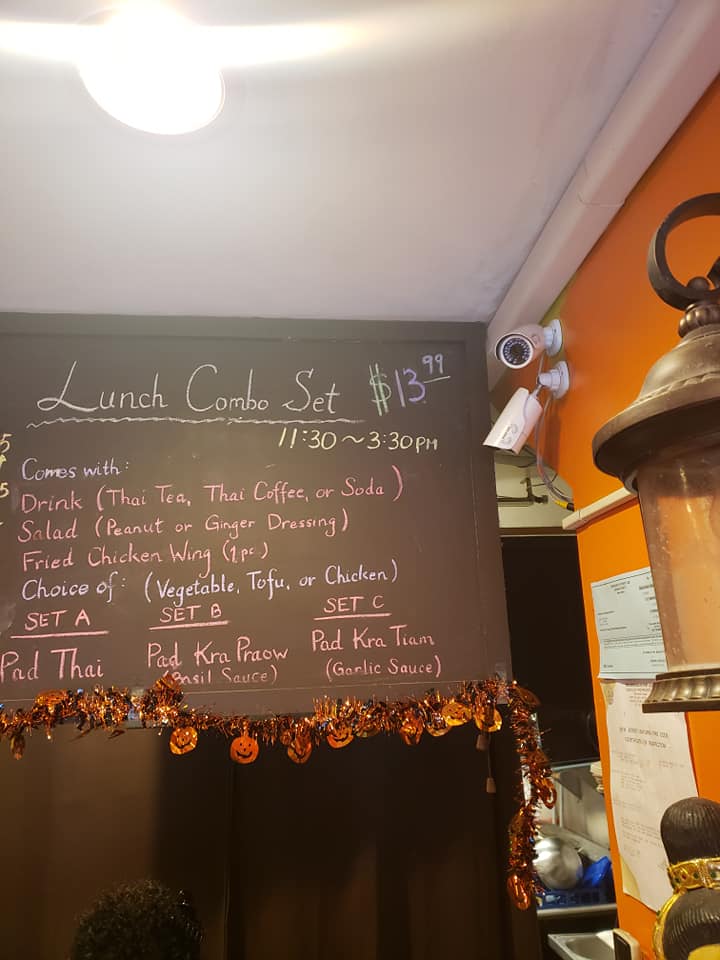 Lunch Combo Set $13.99
11:30~3:30PM
5
5
Comes with:
Drink (Thai Tea, Thai Coffee, or Soda)
Salad (Peanut or Ginger Dressing)
Fried Chicken Wing (1pc)
Choice of: (Vegetable, Tofu, or Chicken)
SET A SET B SET C
Pad Thai Pad Kra Praow Pad Kra Tiam
(Basil Sauce) (Garlic Sauce)
CERTIFICATE OF INSPECTION